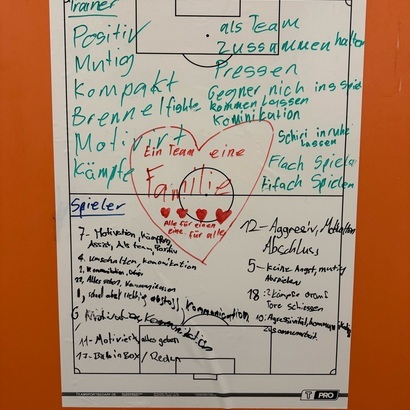 Trainer
Positiv
Mutig
Kompakt
Brennel fighte
Motiviert
Kämpfe
als Team
zusammenhalten
Pressen
Gegner nich ins spiel
kommen laissen
Kominikation
Schiri in ruhe
lassen
Flach Spiele
Eifach Spielen
Ein Team eine
Familie
Alle für einen
eine für alle
Spieler
7- Motivation, kämpfen,
Assist, Als team,
4. umschalten, komonikation
2. Kommunikation,
Alles geben, Kommunikation
8, abschluss, Kommunikation
6
11- Motiviert, alles geben
13- Ball in Box / Reden
12- Aggresiv, Motivation
Abschluss
5- keine Angst, mutig
18: Kämpfe
Tore schiessen
10: Agressivität,
zusammenarbeit.
PRO